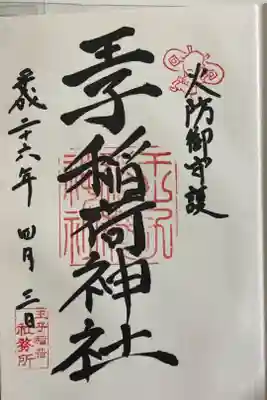 火防御守護
王子稲荷神社
平成二十六年 四月 三日
王子稲荷
社務所